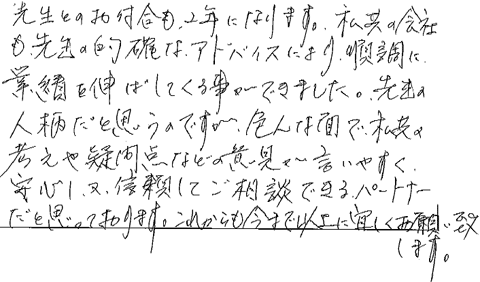 先生とのお付合も、2年になります。私共の会社
も、先生の的確な、アドバイスにより、順調に
業績を伸ばしてくる事ができました。先生の
人柄だと思うのですが、色んな面で、私共の
考えや疑問点などの意見が言いやすく、
安心し、又、信頼してご相談できる、パートナー
だと思っております。これからも今まで以上に宜しくお願い致
します。